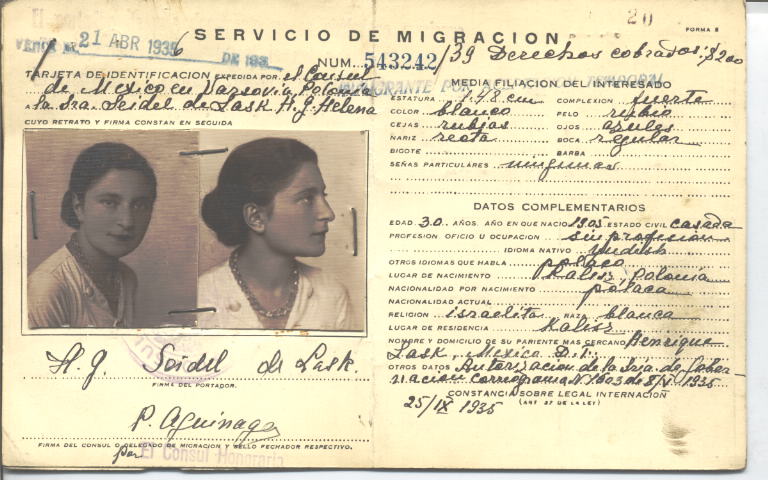 SERVICIO DE MIGRACION
20
FORMA 5
21 ABR 1936
DE 193
NUM. 543242/39 Derechos cobrados: $200
TARJETA DE IDENTIFICACION EXPEDIDA POR el Consul
de Mexico en Varsovia, Polonia
a la Sra. Seidel de Lask H. G. Helena
CUYO RETRATO Y FIRMA CONSTAN EN SEGUIDA
H. G. Seidel de Lask.
FIRMA DEL PORTADOR.
P. Aguinaga
FIRMA DEL CONSUL O DELEGADO DE MIGRACION Y SELLO FECHADOR RESPECTIVO.
por El Consul Honorario
MEDIA FILIACION DEL INTERESADO
ESTATURA 1.48 cm COMPLEXION fuerte
COLOR blanco PELO rubio
CEJAS rubias OJOS azules
NARIZ recta BOCA regular
BIGOTE BARBA
SEÑAS PARTICULARES ningunas
DATOS COMPLEMENTARIOS
EDAD 30 AÑOS. AÑO EN QUE NACIO 1905 ESTADO CIVIL casada
PROFESION, OFICIO U OCUPACION sin profesion
IDIOMA NATIVO yudish
OTROS IDIOMAS QUE HABLA polaco
LUGAR DE NACIMIENTO Kalisz, Polonia
NACIONALIDAD POR NACIMIENTO polaca
NACIONALIDAD ACTUAL
RELIGION israelita RAZA blanca
LUGAR DE RESIDENCIA Kalisz
NOMBRE Y DOMICILIO DE SU PARIENTE MAS CERCANO Henrique
Lask, Mexico D. F.
OTROS DATOS Autorizacion de la Sria. de Gober
nacion
1935
CONSTANCIA SOBRE LEGAL INTERNACION
(ART 57 DE LA LEY)
25/IX 1935